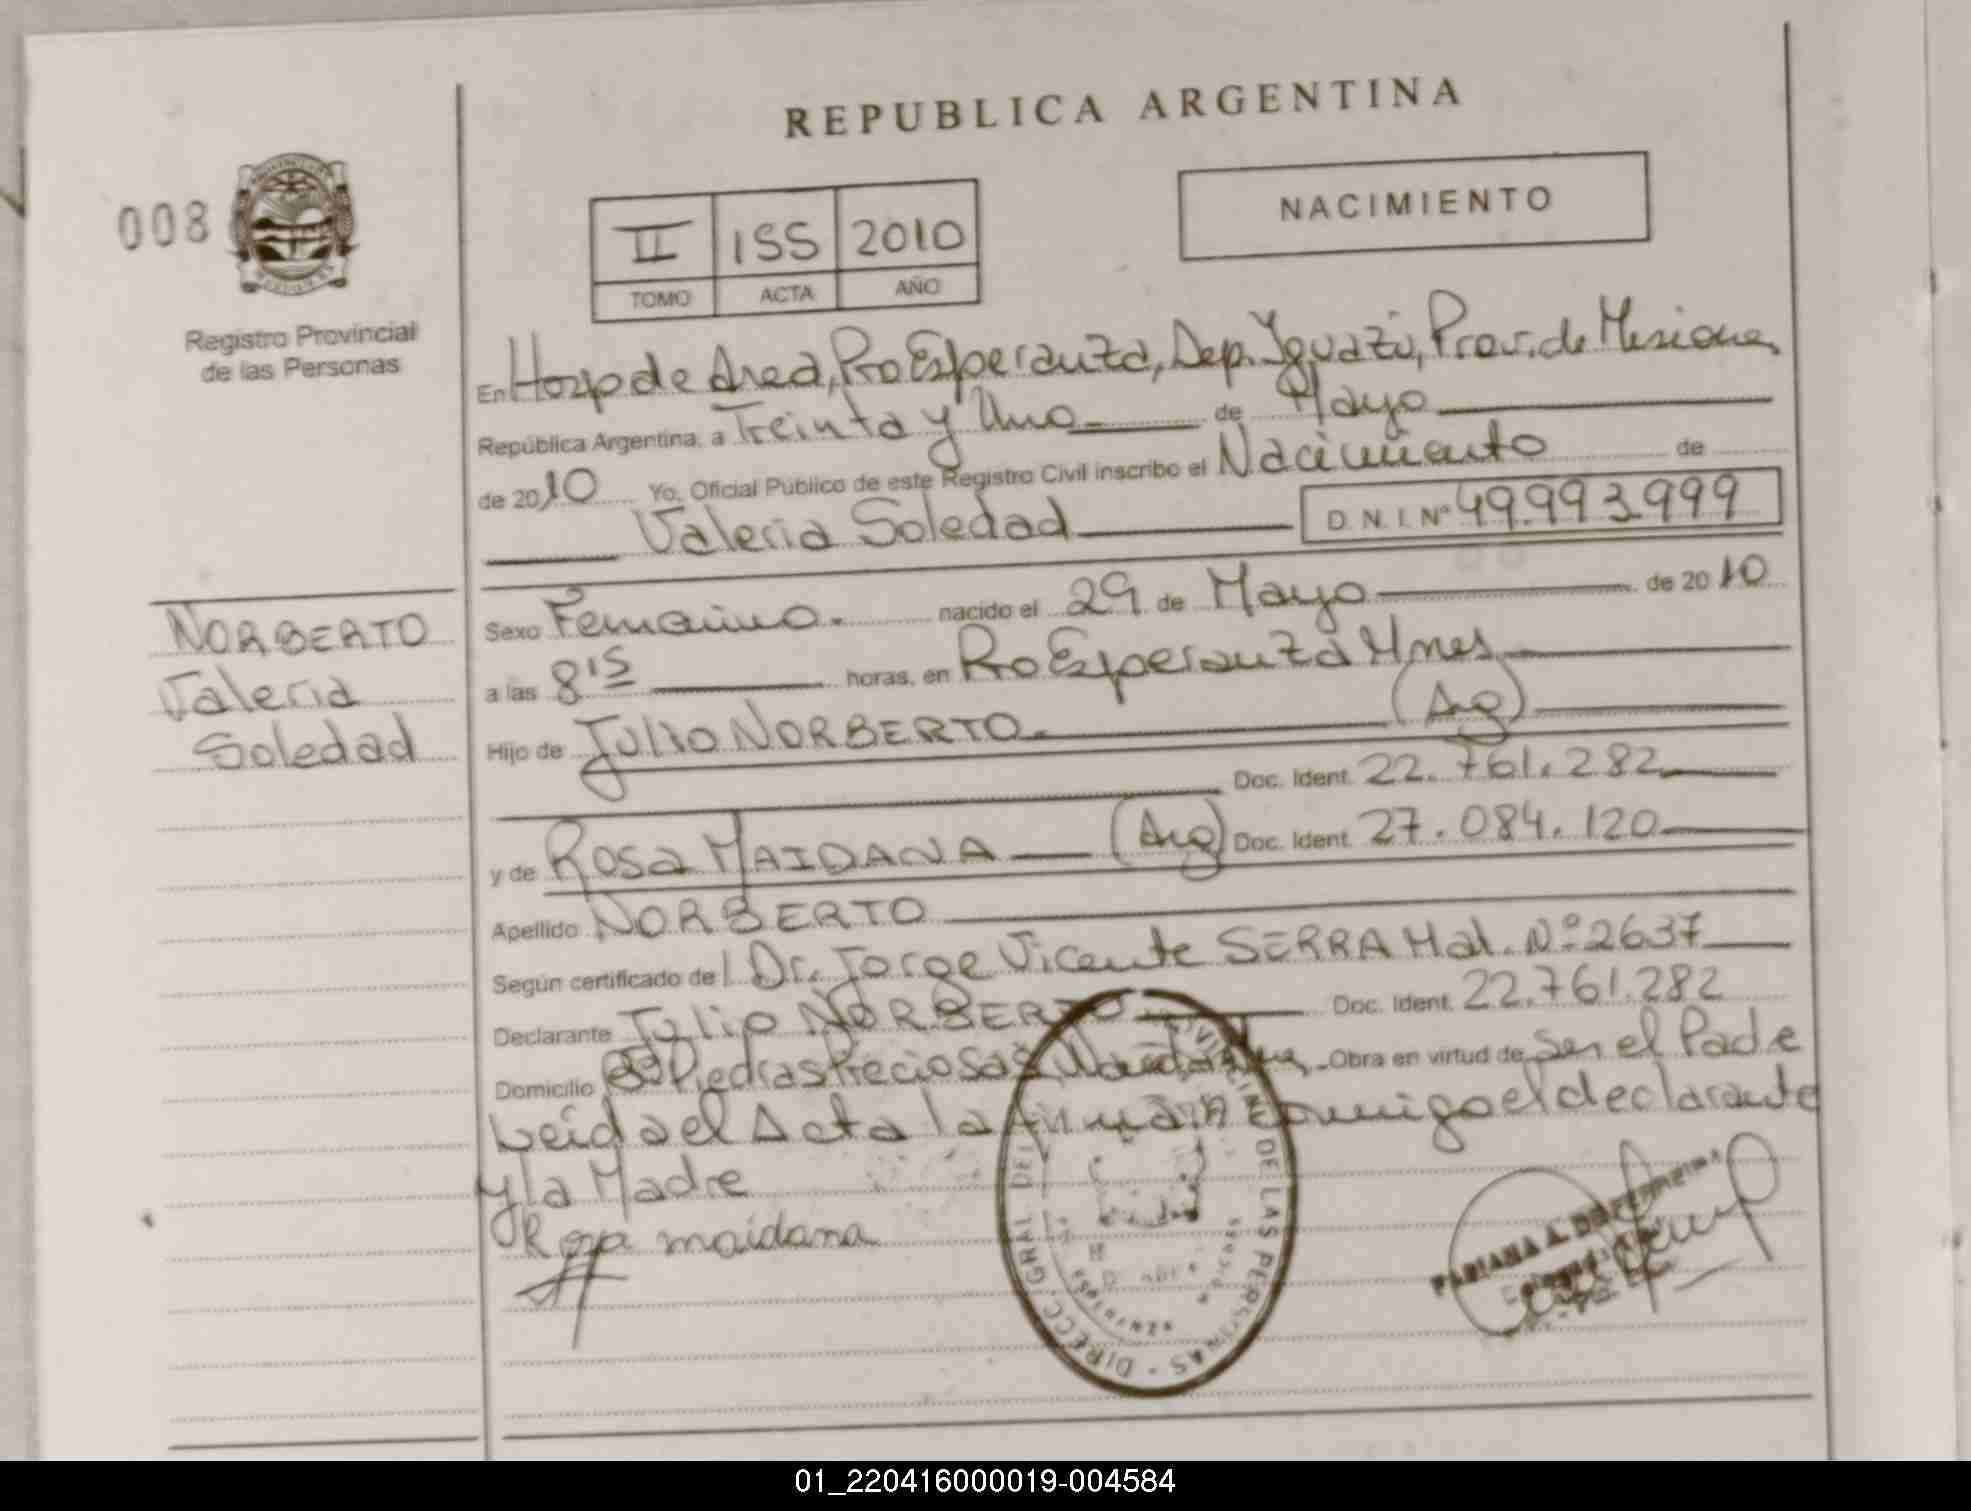 REPUBLICA ARGENTINA
008
NACIMIENTO
II 155 2010
TOMO ACTA AÑO
Registro Provincial
de las Personas
En Hosp de Area, Pto Esperanza, Dep. Iguazú, Prov. de Misiones
República Argentina, a Treinta y Uno de Mayo
de 2010 Yo, Oficial Público de este Registro Civil inscribo el Nacimiento de
Valeria Soledad D.N.I. Nº 49.993.999
NORBERTO
Valeria
Soledad
Sexo Femenino. nacido el 29 de Mayo de 2010
a las 8'15 horas, en Pto Esperanza Mnes
Hijo de JULIO NORBERTO. (Arg)
Doc. Ident. 22.761.282
y de ROSA MAIDANA (Arg) Doc. Ident. 27.084.120
Apellido NORBERTO
Según certificado de Dr. Jorge Vicente SERRA Mat. Nº 2637
Declarante Julio NORBERTO Doc. Ident. 22.761.282
Domicilio Bº Piedras Preciosas, Obra en virtud de Ser el Padre
Leida el Acta la firman conmigo el declarante
y la Madre
Rosa maidana
DIRECC. GRAL. DEL CIVIL DE LAS PERSONAS
FABIANA A.
01_220416000019-004584